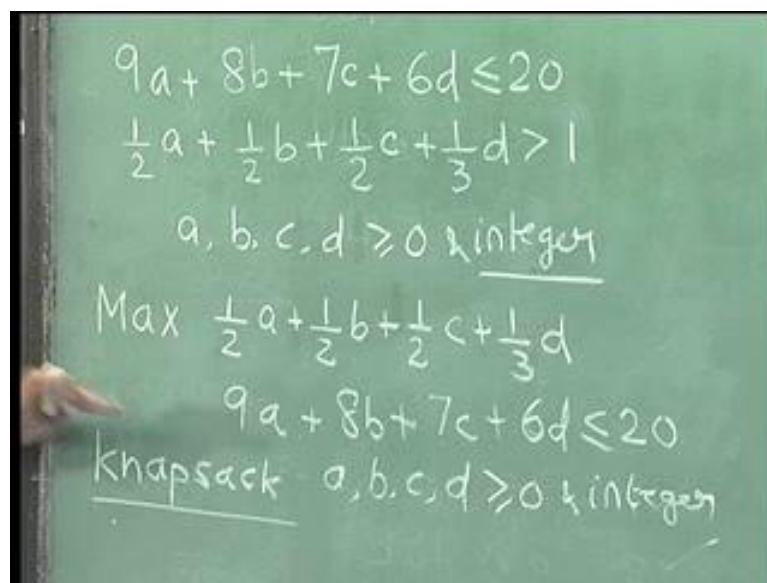 9a + 8b + 7c + 6d ≤ 20
1/2 a + 1/2 b + 1/2 c + 1/3 d > 1
a, b, c, d ≥ 0 & integer
Max 1/2 a + 1/2 b + 1/2 c + 1/3 d
9a + 8b + 7c + 6d ≤ 20
Knapsack a, b, c, d ≥ 0 & integer